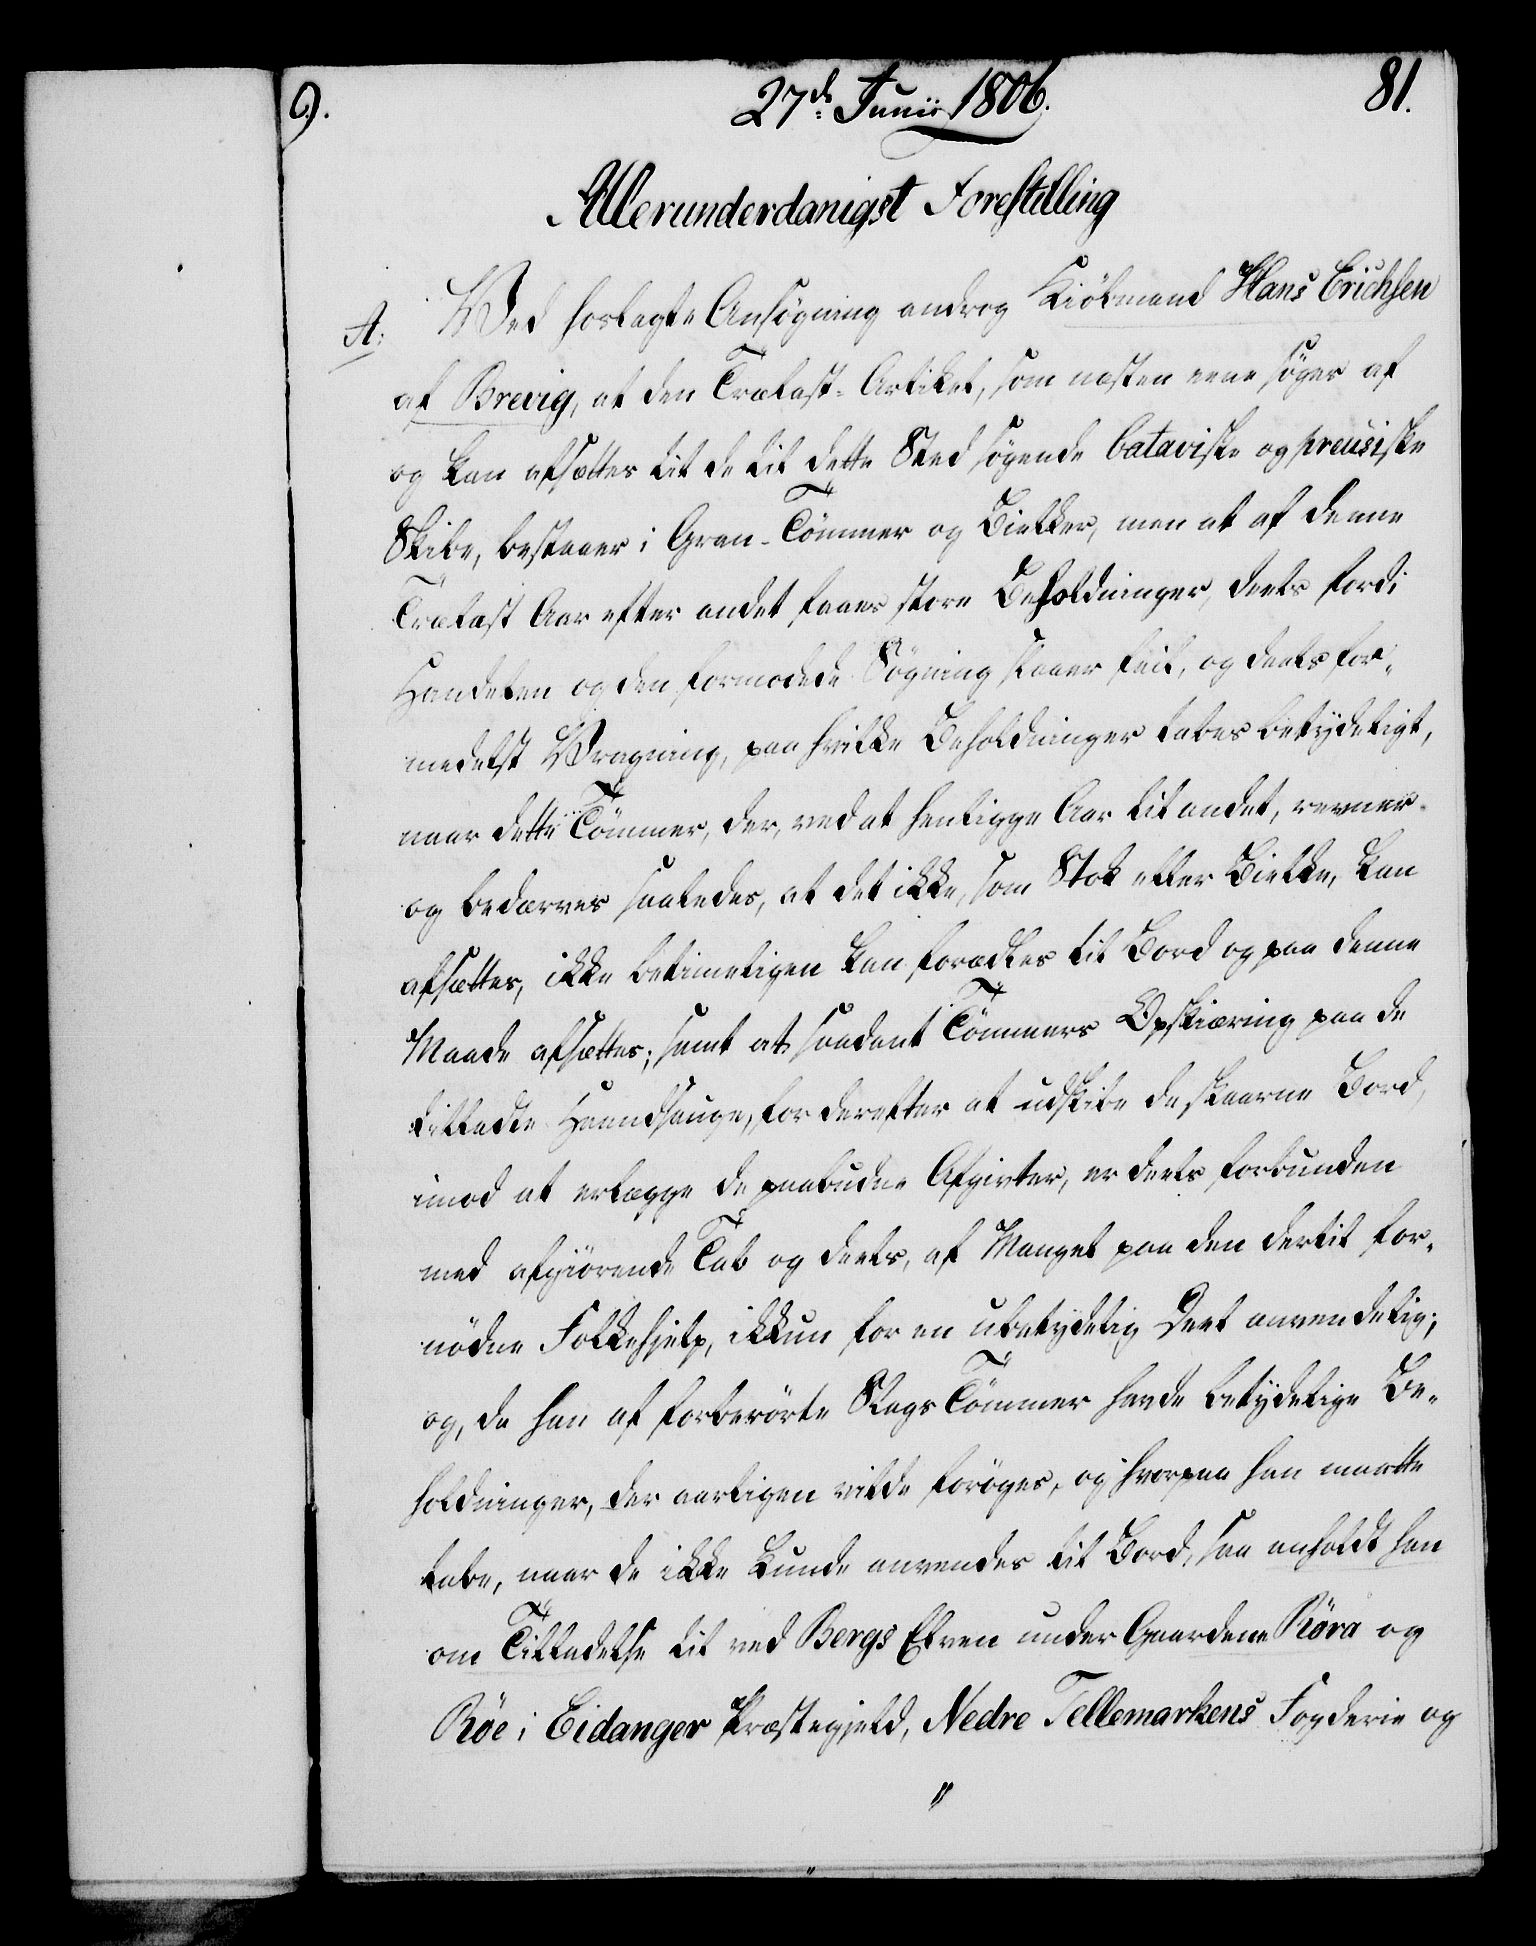 9.
27de Junii 1806.
81.
Allerunderdanigst Forestilling
A:
Ved hoslagte Ansøgning androg Kiöbmand Hans Erichsen
af Brevig, at den Trælast-Artikel, som næsten ene söges af
og kan afsættes til de til dette Sted søgende bataviske og preusiske
Skibe, bestaaer i Gran-Tömmer og Bielker, men at af denne
Trælast Aar efter andet haves store Beholdninger, deels fordi
Handelen og den formodede Søgning slaaer feil, og deels for-
medelst Vragning, paa hvilke Beholdninger tabes betydeligt,
naar dette Tömmer, der, ved at henligge Aar til andet, revner
og bedærves saaledes, at det ikke, som Stok eller Bielke, kan
afsættes, ikke betimeligen kan forædles til Bord og paa denne
Maade afsættes; samt at saadant Tömmers Opskiæring paa de
tilladte Haandsauge, for derefter at udskibe de skaarne Bord,
imod at erlægge de paabudne Afgivter, er deels forbunden
med afgiörende Tab og deels, af Mangel paa den dertil for-
nödne Folkehjelp, ikkun for en ubetydelig Deel anvendelig;
og, da han af forberörte Slags Tömmer havde betydelige Be-
holdninger, der aarligen vilde forøges, og hvorpaa han maatte
tabe, naar de ikke kunde anvendes til Bord, saa anholdt han
om Tilladelse til ved Bergs Elven under Gaardene Röra og
Röe i Eidanger Præstegjeld, Nedre Tellemarkens Fogderie og